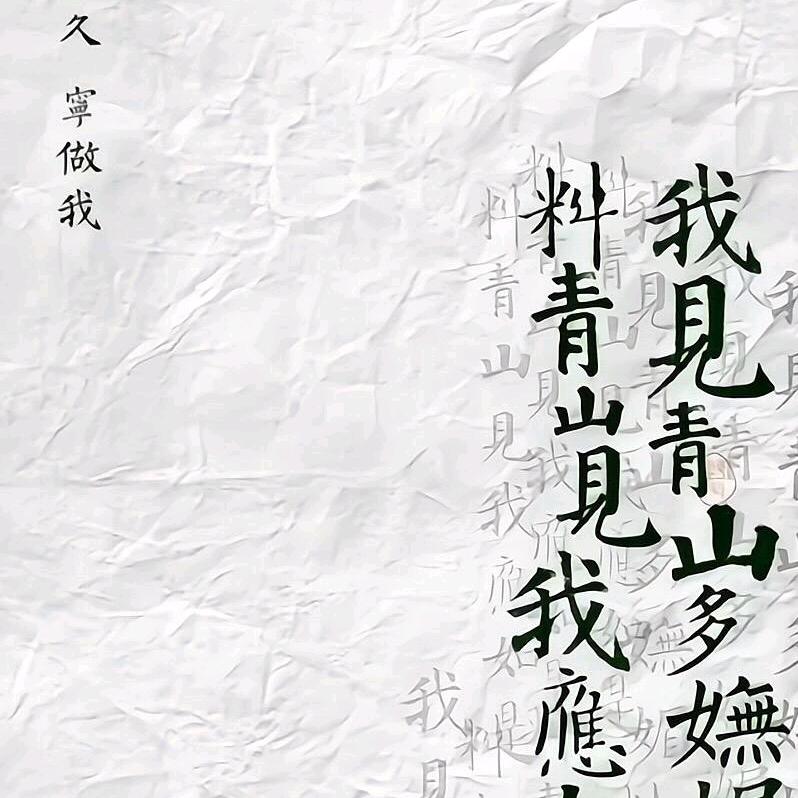 我見青山多嫵
料青山見我應
久 寧做我